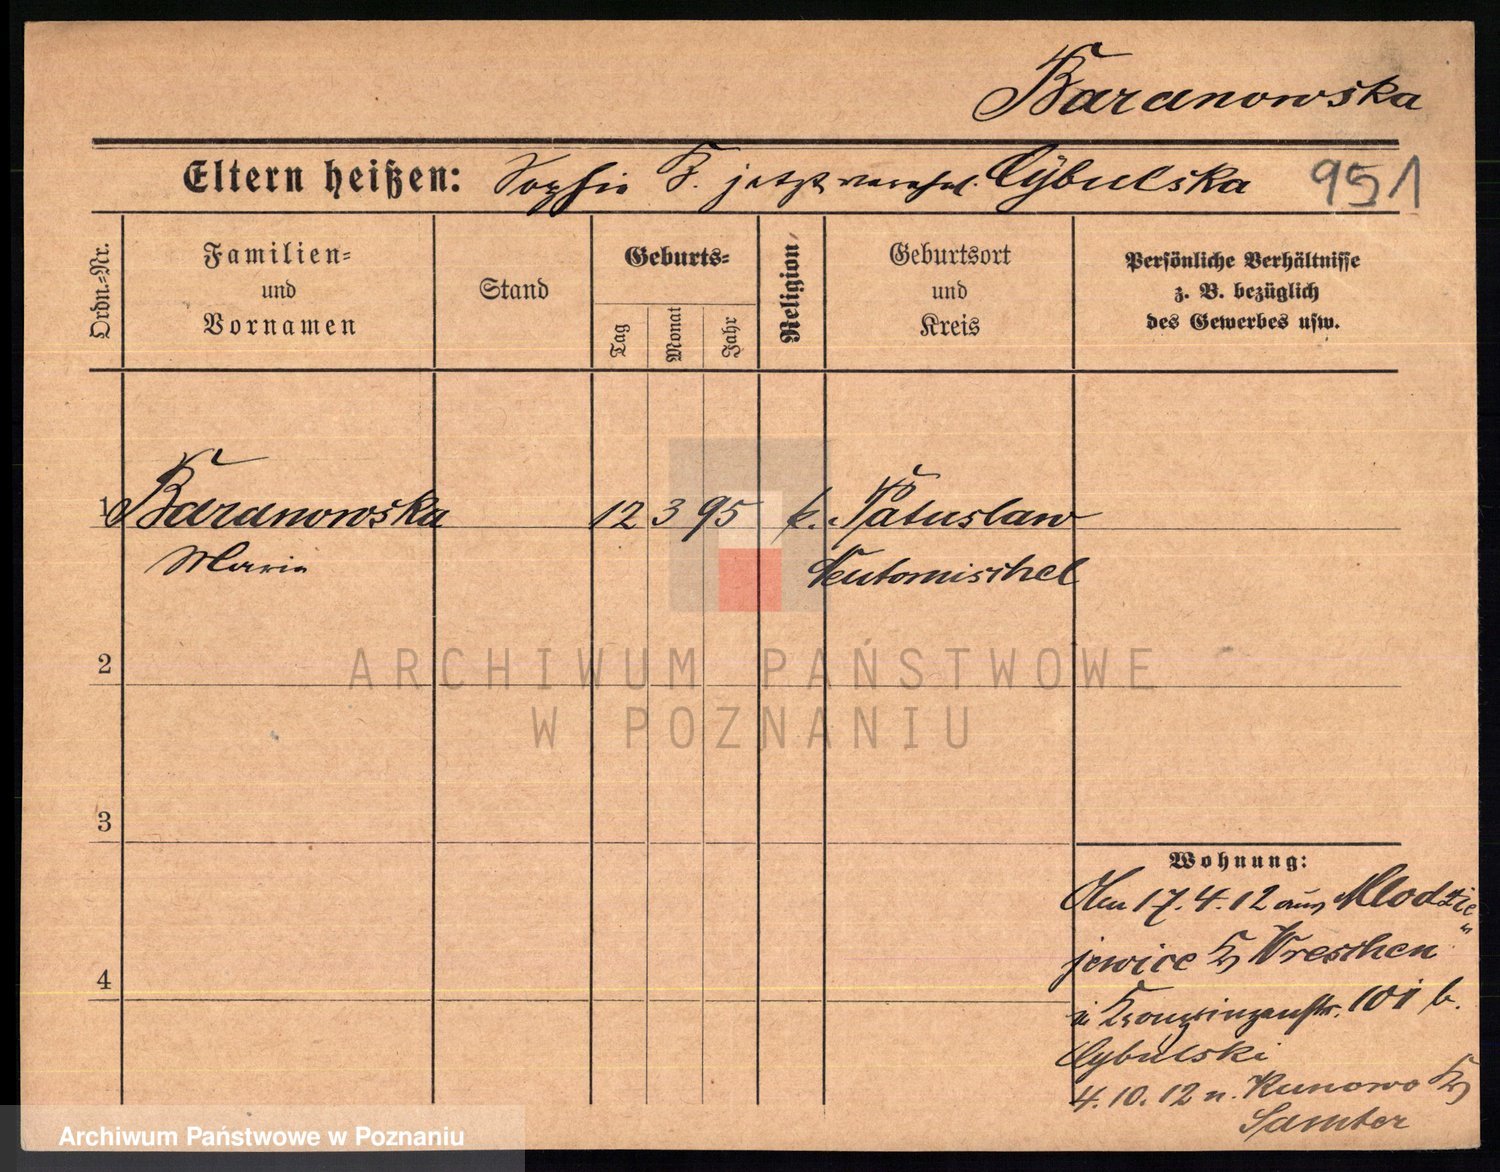 Baranowska
Eltern heißen: Sophie B. jetzt verehel. Cybulska 951
Ordn.-Nr.
Familien-
und
Vornamen
Stand
Geburts-
Tag
Monat
Jahr
Religion
Geburtsort
und
Kreis
Persönliche Verhältnisse
z. B. bezüglich
des Gewerbes usw.
1 Baranowska 12 3 95 k.
Marie Neutomischel
2
3
4
Wohnung:
Am 17.4.12 aus Mlodzie
jewice Kr Wreschen
Kronprinzenstr. 101 b.
Cybulski
4.10.12 n. Kunowo Kr
Samter
ARCHIWUM PAŃSTWOWE
W POZNANIU
Archiwum Państwowe w Poznaniu